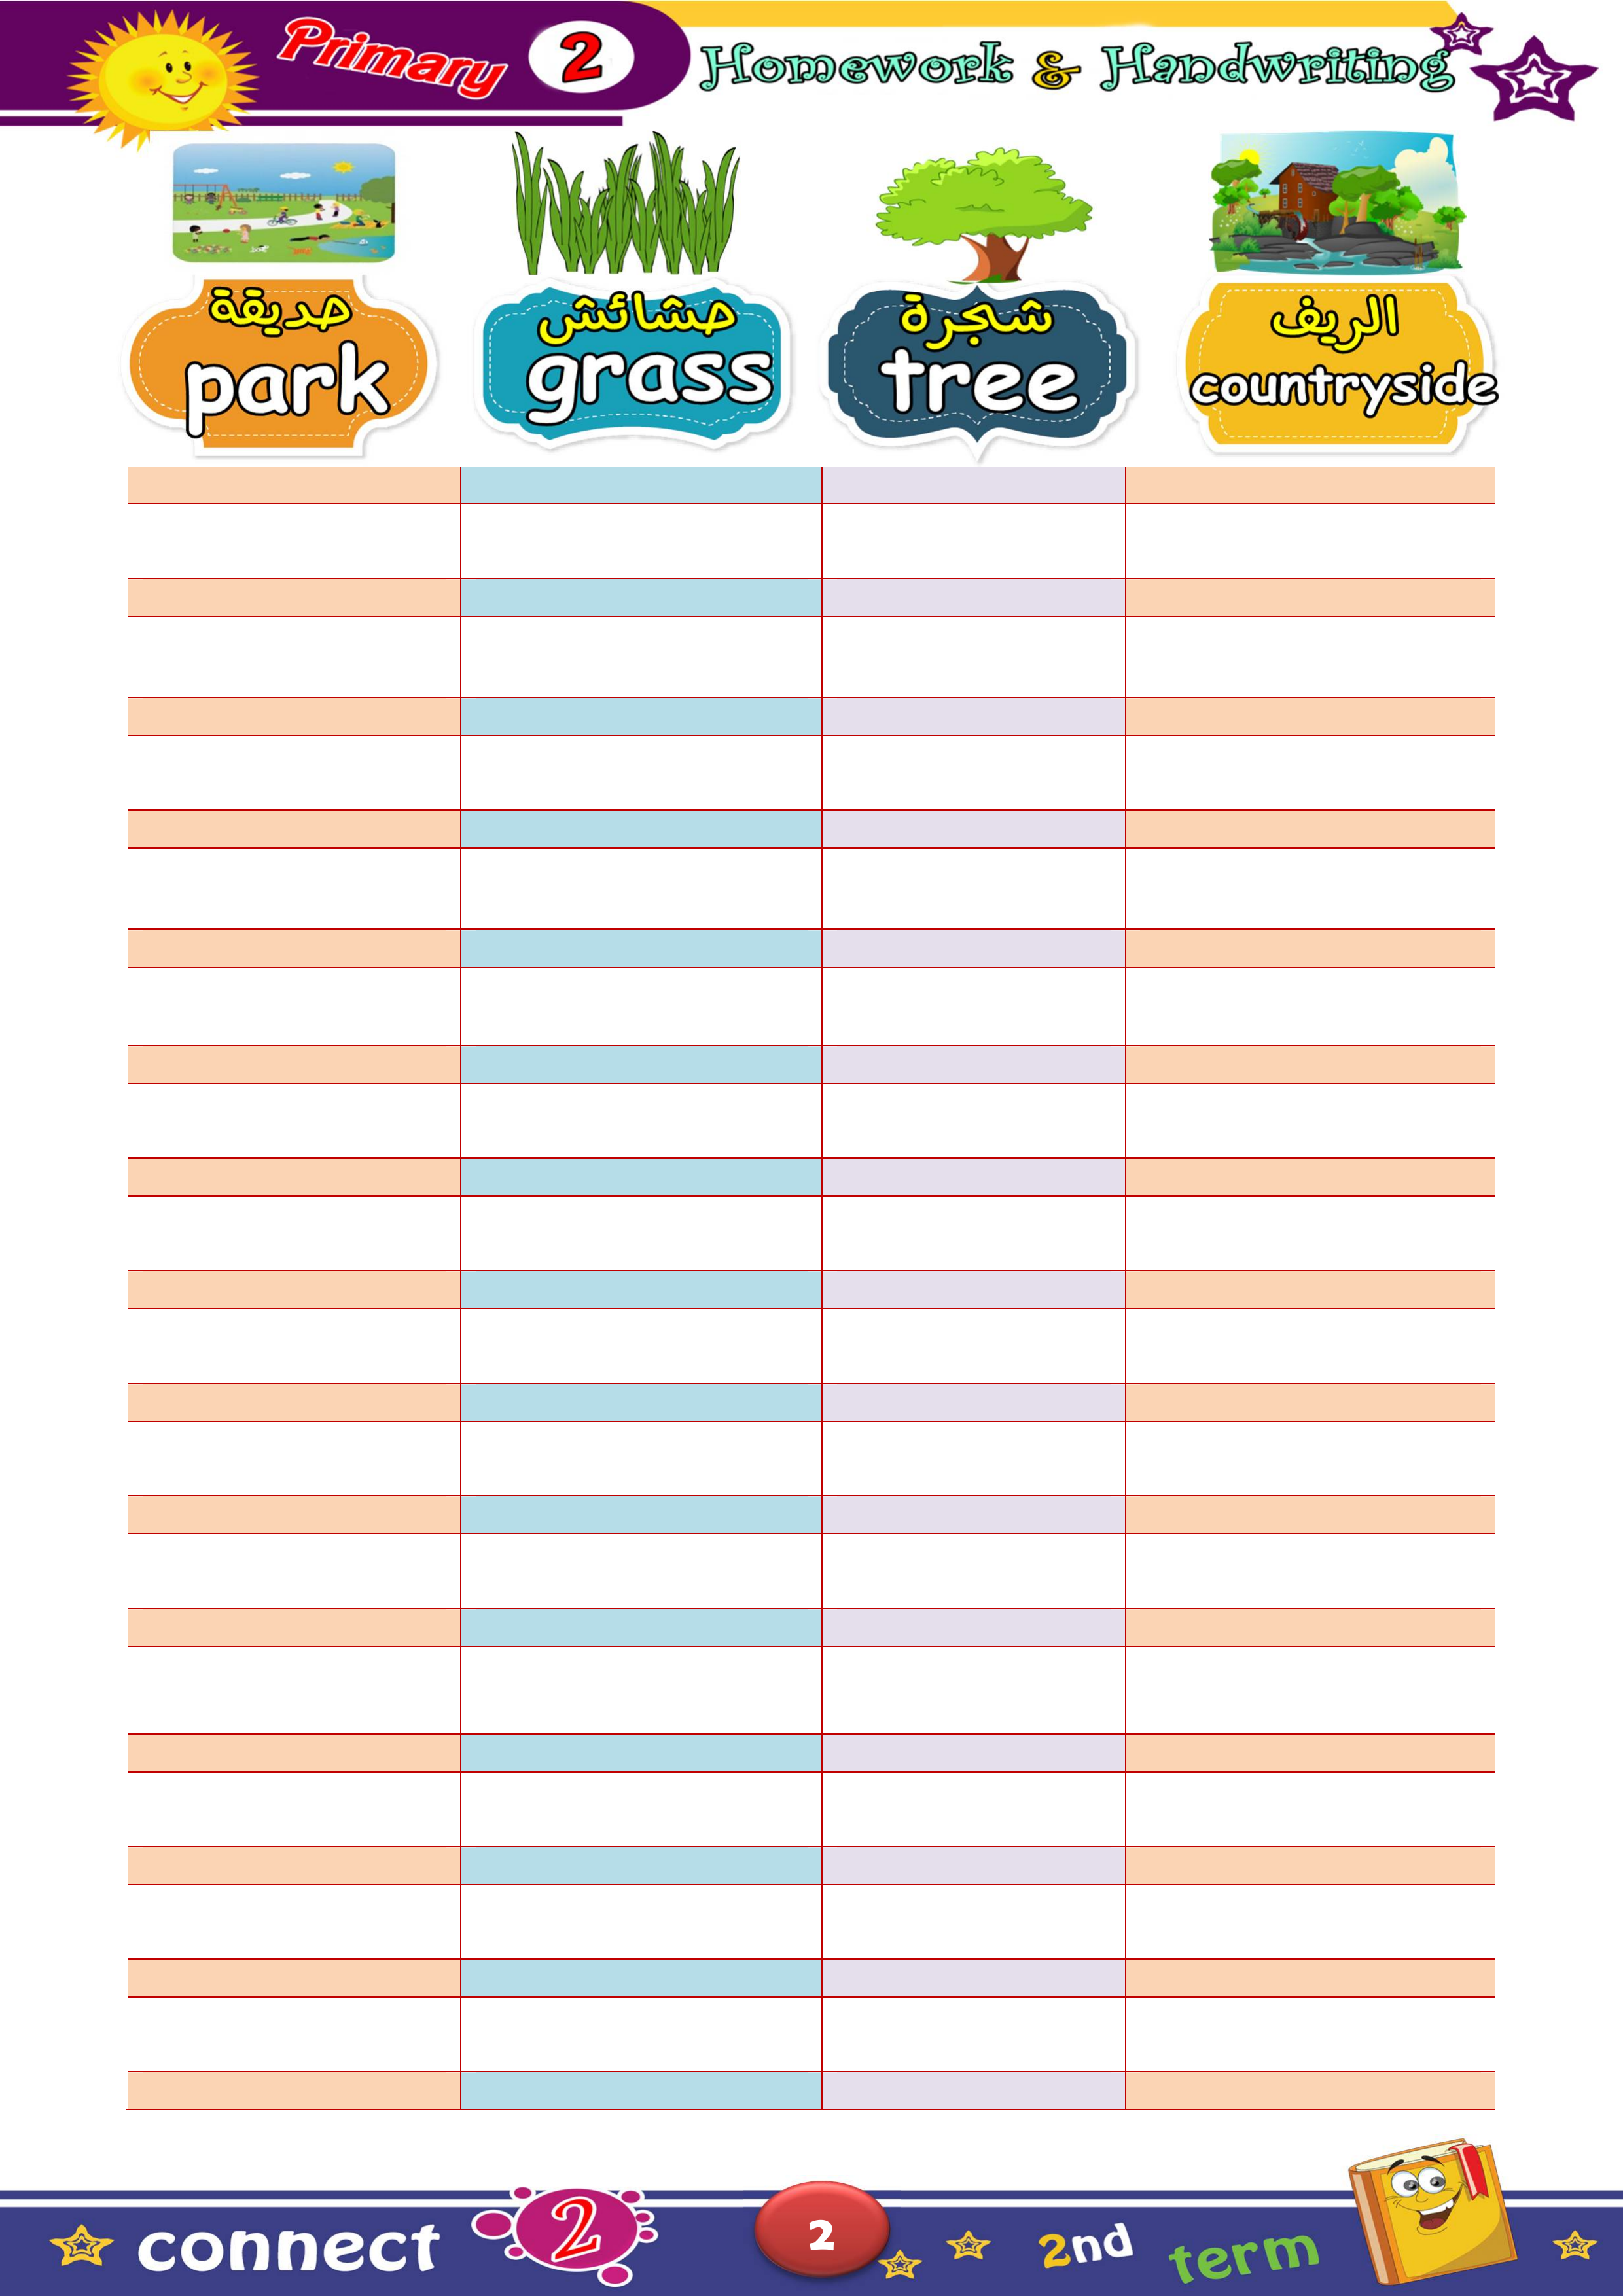 Primary 2 Homework & Handwriting
حديقة
park
حشائش
grass
شجرة
tree
الريف
countryside
connect 2 2 2nd term